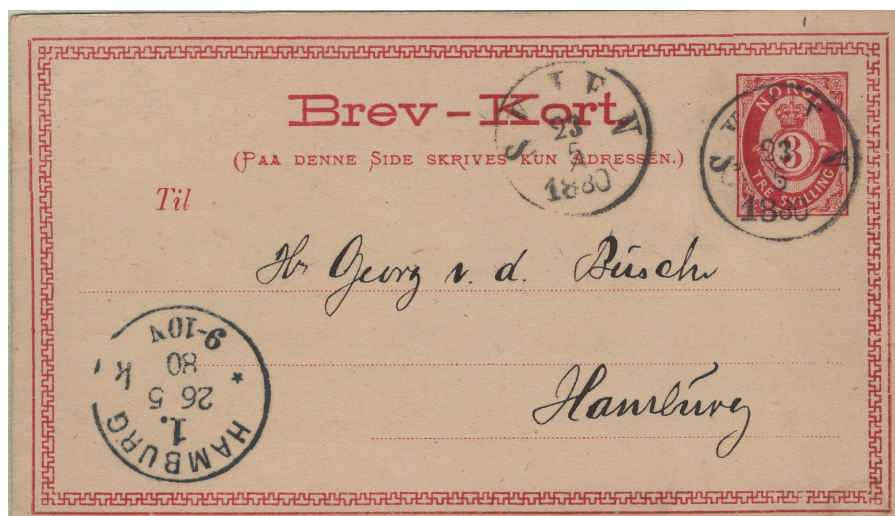 Brev-Kort.
(PAA DENNE SIDE SKRIVES KUN ADRESSEN.)
Til
SKIEN
23
5
1880
NORGE
3
TRE SKILLING
23
5
1880
Hr Georg v. d. Busch
Hamburg
HAMBURG
1.
26 5
80
9-10V
k